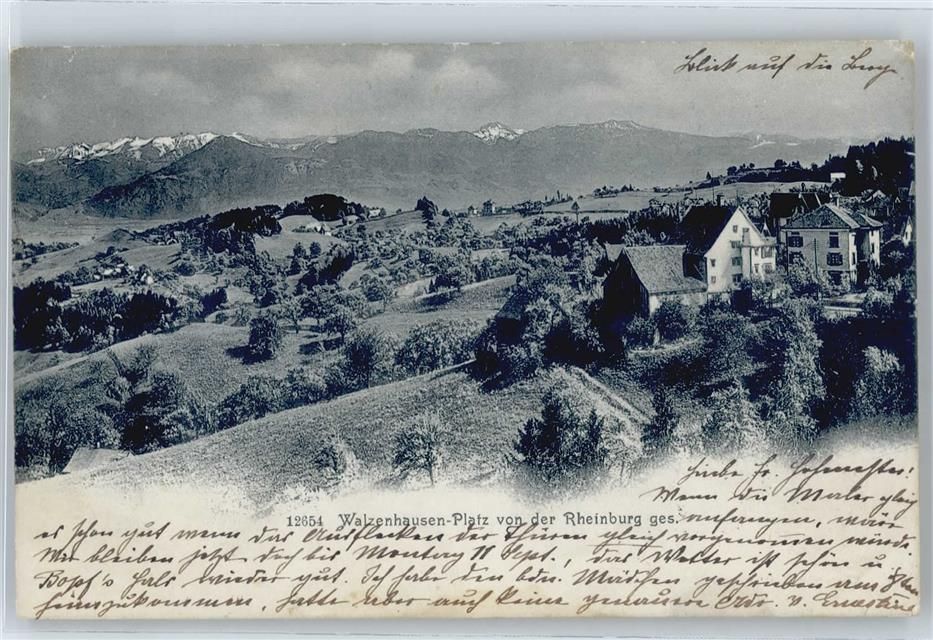 Blick auf die Berge
12654 Walzenhausen-Platz von der Rheinburg ges.
Liebe Fr. Hofmeister!
Wenn die Maler gleich
anfangen, wäre
es schon gut wenn das Ausflecken der Thüren gleich vorgenommen würde
Wir bleiben jetzt doch bis Montag 11 Sept., das Wetter ist schön u.
Hals wieder gut. Ich habe den bdn. Mädchen geschrieben am
heimzukommen, hatte aber auch keine genauere Adr. v. Ernestine